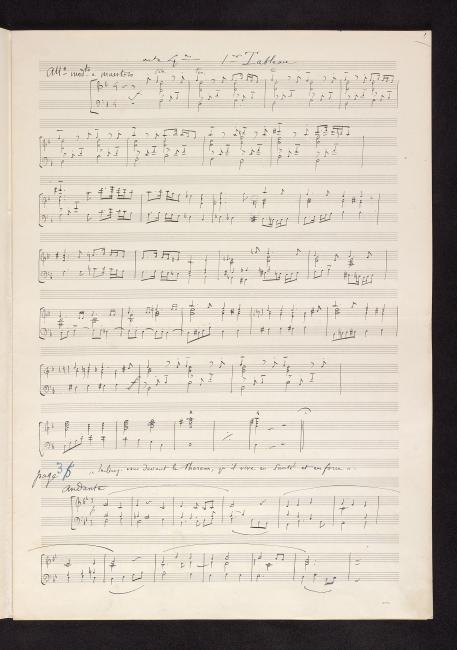 acte 4me 1er Tableau
All° modto e maestoso
page 36 " Inclinez-vous devant le Pharaon, qu'il vive en santé et en force "
Andante